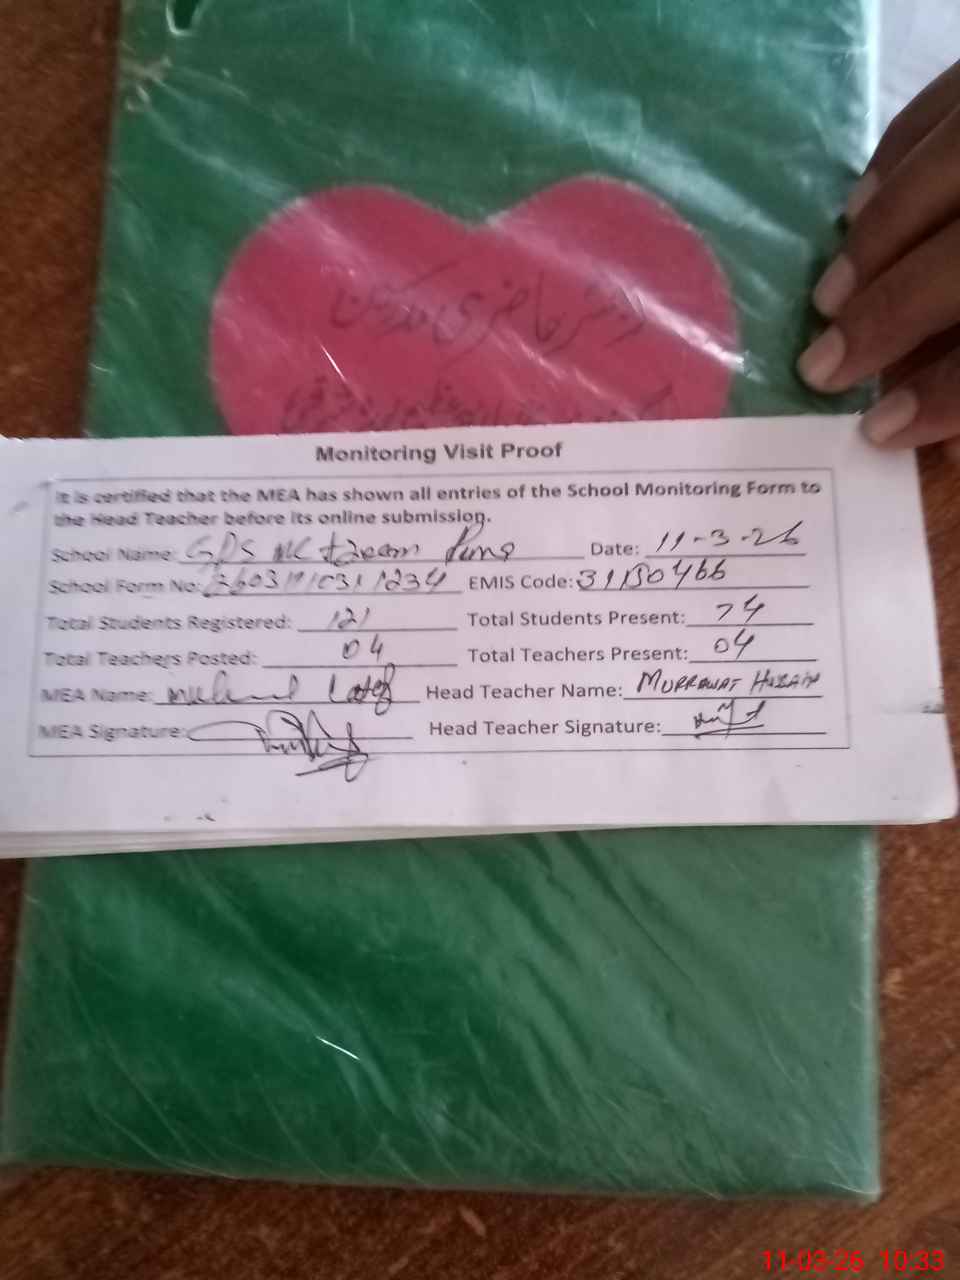 دفتر حاضری مدرسین
Monitoring Visit Proof
It is certified that the MEA has shown all entries of the School Monitoring Form to
the Head Teacher before its online submission.
School Name: GPS MC Date: 11-3-26
School Form No: EMIS Code: 31130466
Total Students Registered: 121 Total Students Present: 74
Total Teachers Posted: 04 Total Teachers Present: 04
MEA Name: Head Teacher Name: MURRAWAT HUSAIN
MEA Signature: Head Teacher Signature:
11-03-26 10:33